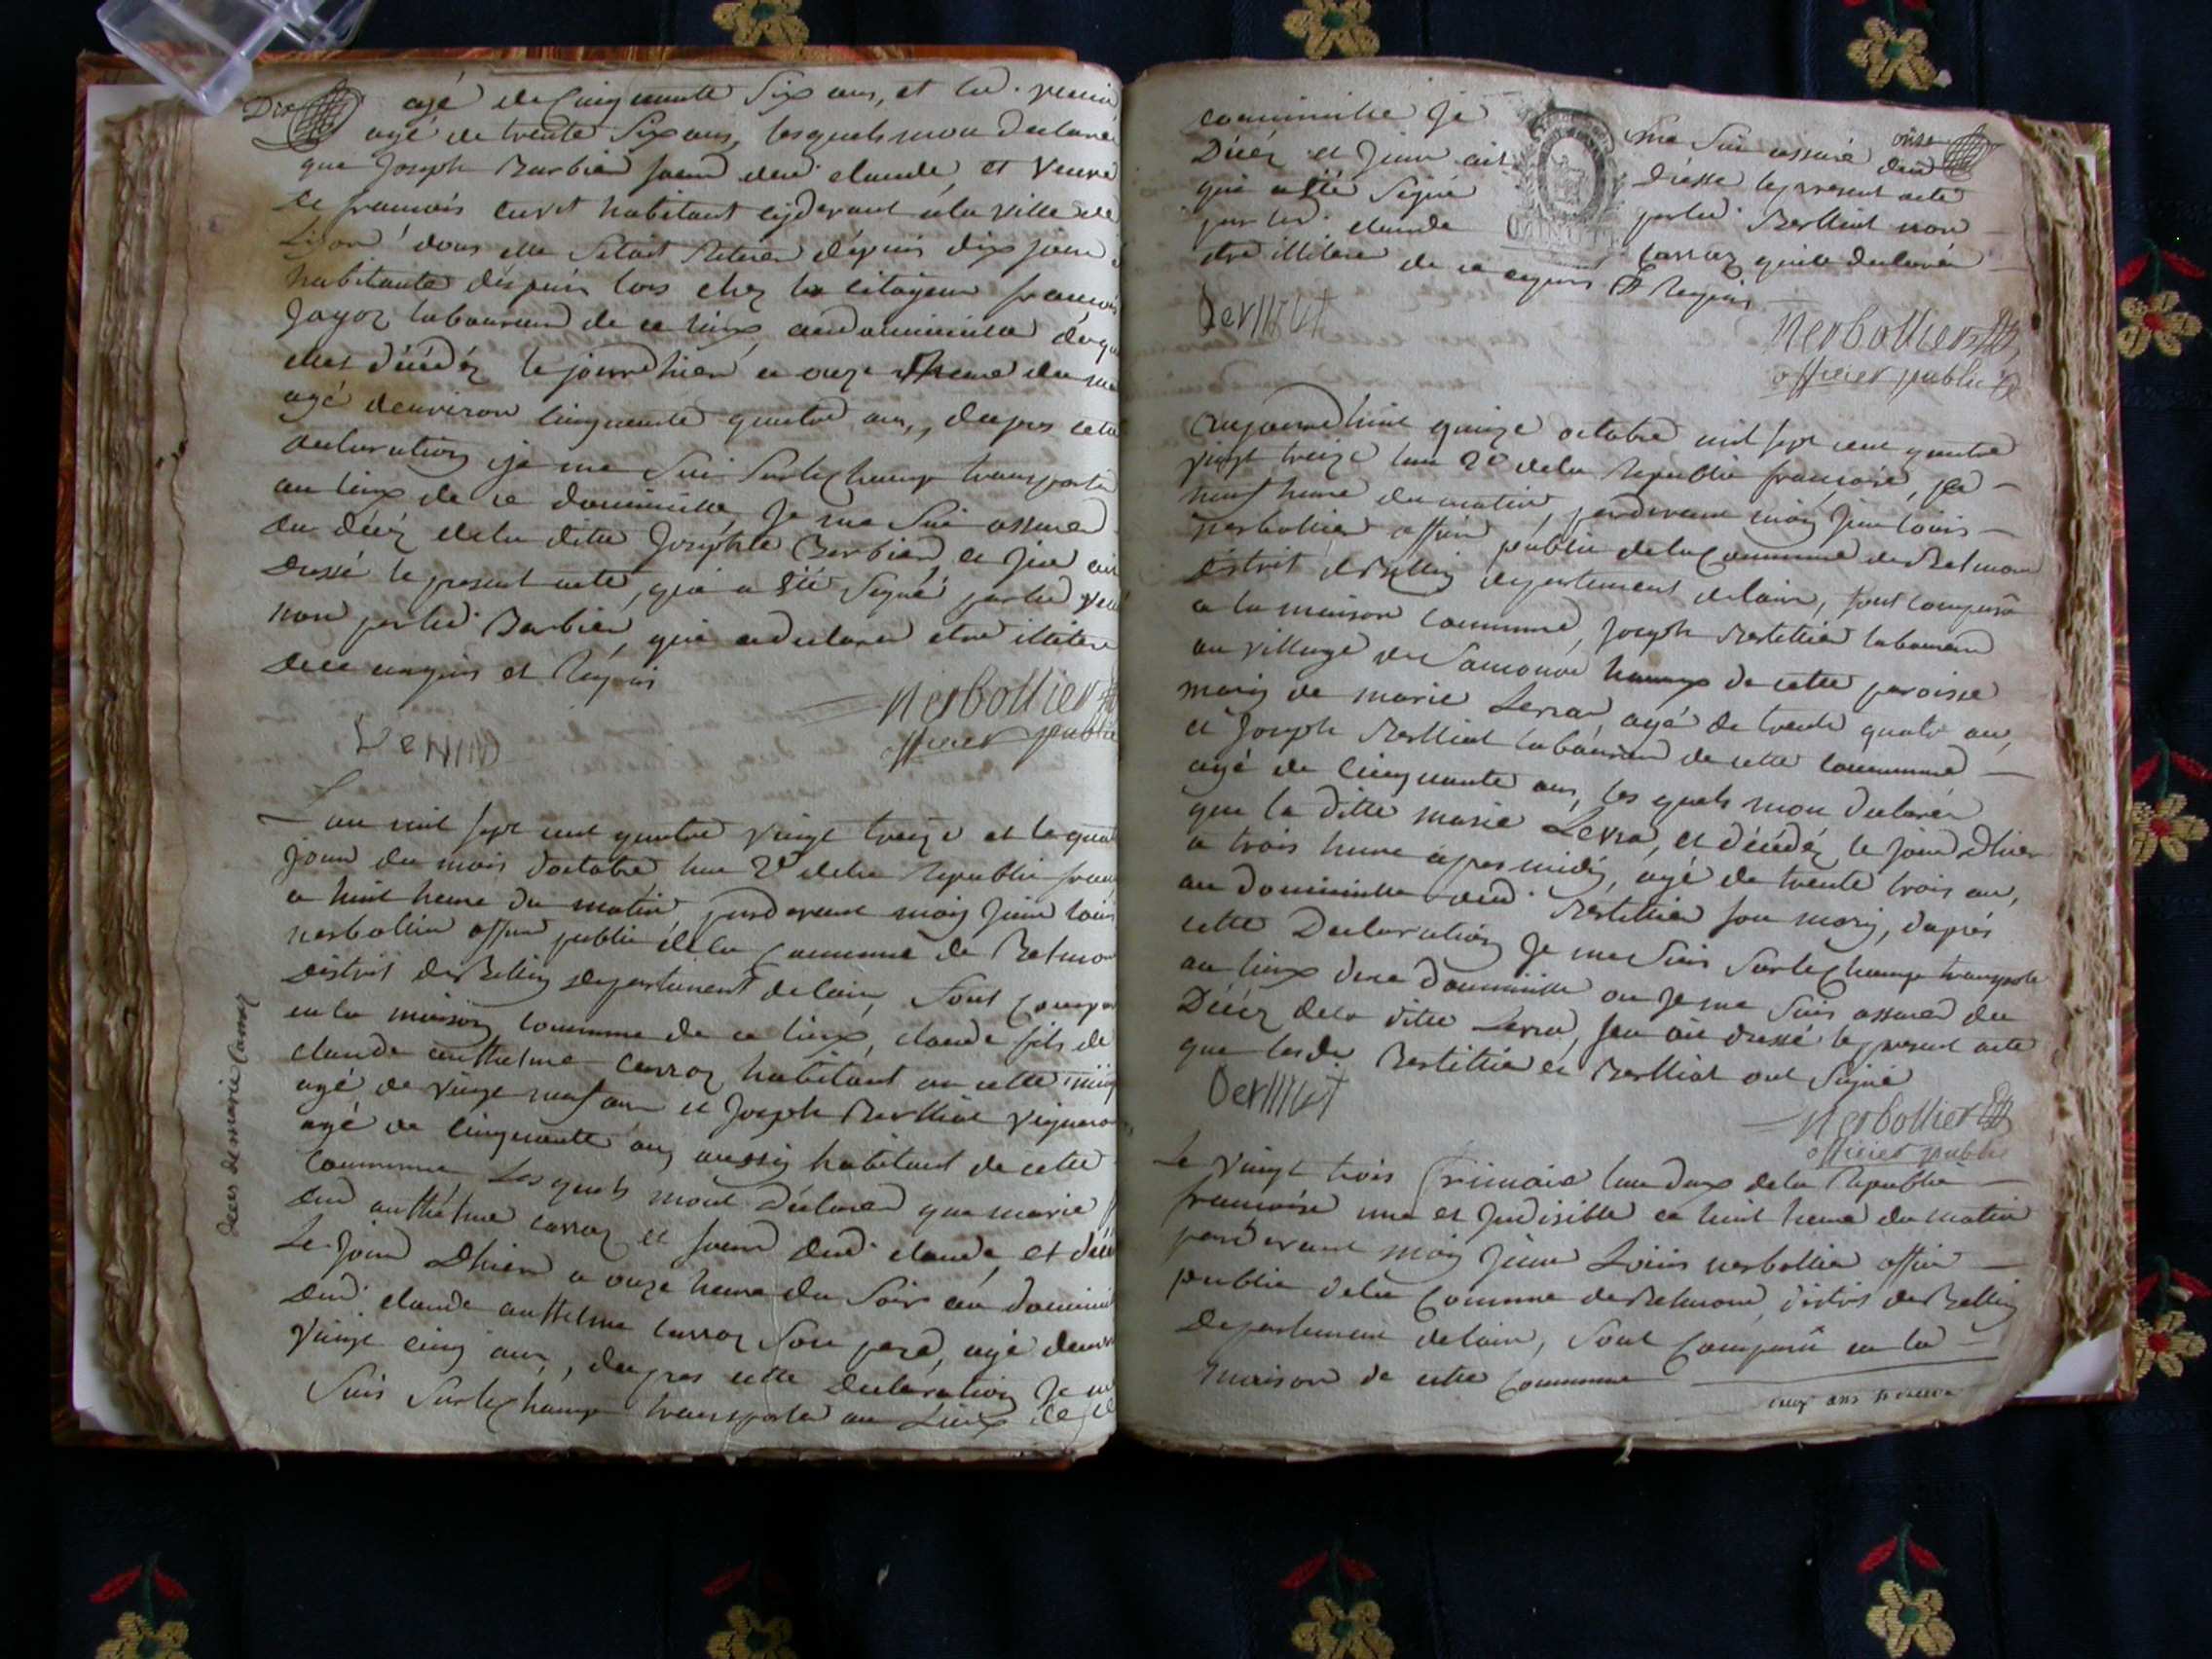 Dix
agé de Cinquante Six ans, et led. venin
agé de trente Six ans, lesquels mon declaré
que Joseph Barbier soeur dud. claude, et veuve
de francois curt habitant cydevant a la ville de
Lion dous elle setait Retiré depuis dix jour
habitante dépuis lors chez le citoyen francois
Jayoz laboureur de ce lieux, audominicile
elles décédéz le jourdhier a onze heure du
agé denviron cinquante quatre ans, dapres cette
declaration je me Suis Surlechamp transporté
au lieux de ce dominicille, Je me Suis assuré
du décéz dela ditte Joséphte Barbier, et J'en ait
dressé le present acte, qui a Eté Signé parled
non parled. Barbier, qui adeclaré etre illitere
dece enquis et Requis
Venin
Nerbollier
officier public
Lan mil sept cent quatre vingt treize et le
Jour du mois doctobre lan 2e dela Republic
a huit heure du matin, pardevant moy Jean louis
nerbollier officier public dela Commune de Belmon
district de Belley departement delain, Sont
en la maison commune de ce lieux, claude fils de
claude anthelme carroz habitant en cette
agé de vingt neuf ans et Joseph Berlliat vigneron
agé de cinquante ans aussy habitant de cette
commune Lesquels mont déclaré que marie
dud anthelme carroz et soeur dud. claude, et
Le Jour Dhier a onze heure du Soir au
dud. claude anthelme carroz Son pere, agé
vingt cinq ans, dapres cette declaration Je
Suis Surlechamp transporté au Lieux de
deces de marie Carroz
dominicille je me Suis assuré dud
onze
Décéz et J'enn ait dressé le present acte
qui a Eté Signé parled. Berlliat non
par led. claude carroz qui a declaré
etre illitere de ce enquis et Requis
berlliat
Nerbollier
officier public
Aujourdhuit quinze octobre mil sept cent quatre
vingt treize lan 2e dela Republic francoise, a
neuf heure du matin, pardevant moy Jean louis
nerbollier officier public dela Commune de Belmon
district de Belley departement delain, sont comparu
a la maison commune, Joseph Bertillier laboureur
au village de Samonod hameaux de cette paroisse
mary de marie Levra, agé de trente quatre ans,
et Joseph Berlliat laboureur de cette commune
agé de cinquante ans, les quels mon declaré
que la ditte marie Levra, et décédéz le jour dhier
a trois heure apres midy, agé de trente trois ans,
au dominicille dud. Bertillier son mary, daprés
cette Declaration Je me Suis Surlechamp transporté
au lieux dece dominicille ou Je me Suis assuré du
Décéz dela ditte Levra, Jen ait dressé le present acte
que lesd. Bertillier et Berlliat ont Signé
berlliat
Nerbollier
officier public
Le vingt trois frimaire lan deux dela Republic
francoise une et Jndisible a huit heure du matin
pardevant moy Jean Louis nerbollier officier
public dela Commune de Belmont, district de Belley
Departement delain, Sont Comparu en la
maison de cette commune